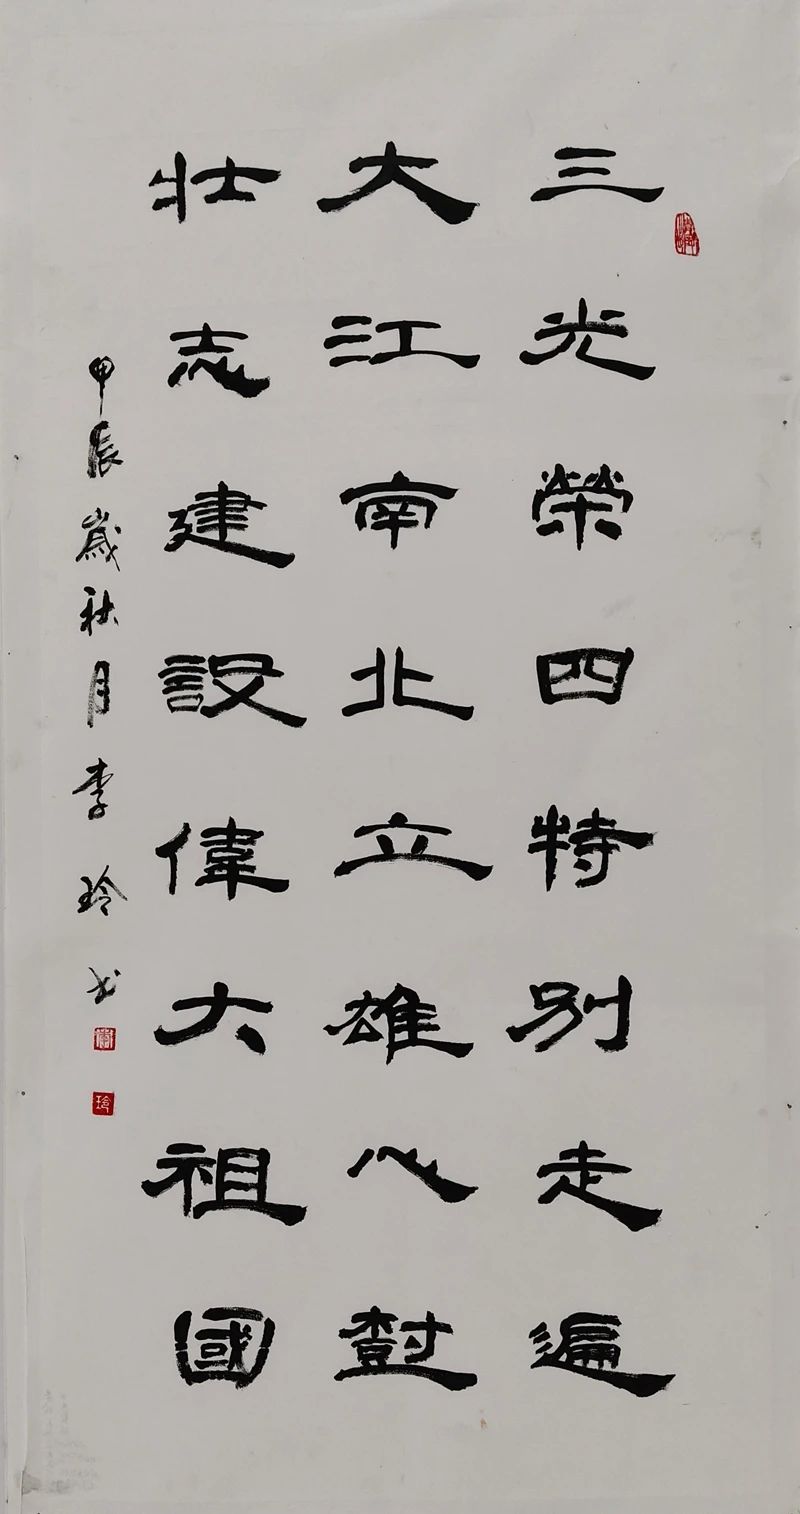 三光榮四特別走遍
大江南北立雄心樹
壯志建設偉大祖國
甲辰歲秋月李玲书
李
玲